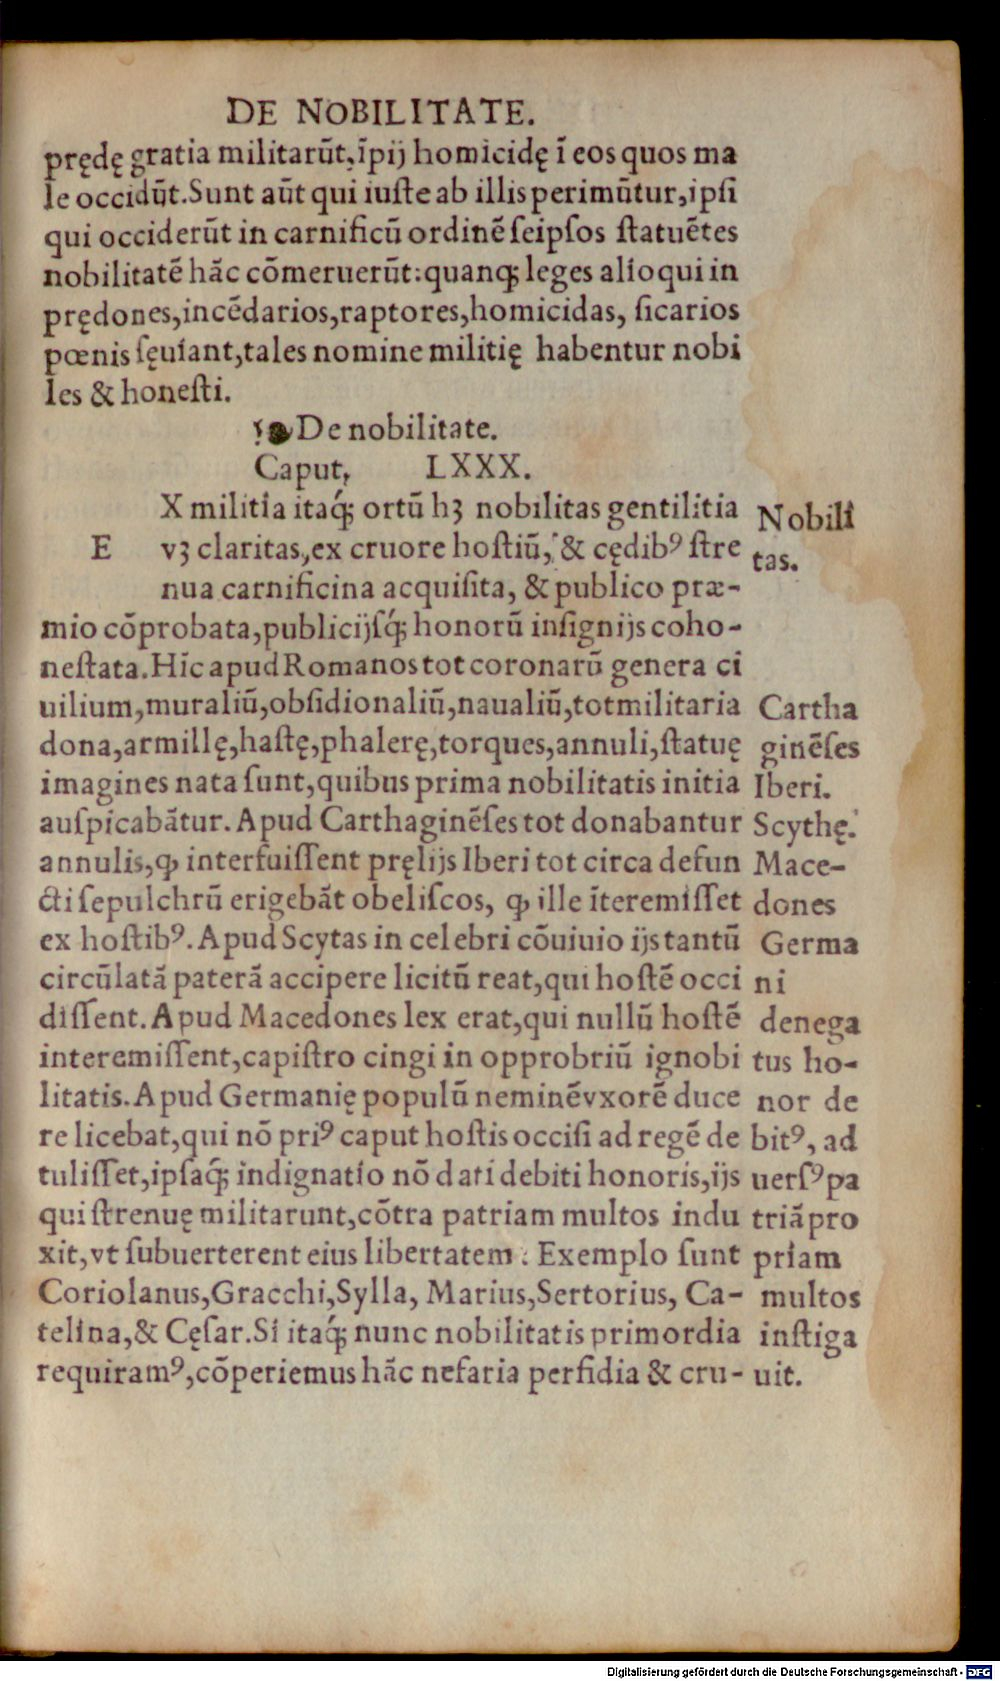 DE NOBILITATE.
prędę gratia militarũt, ĩpij homicidę ĩ eos quos ma
le occidũt. Sunt aũt qui iuste ab illis perimũtur, ipsi
qui occiderũt in carnificũ ordinẽ seipsos statuẽtes
nobilitatẽ hãc cõmeruerũt: quanqꝫ leges alioqui in
prędones, incẽdarios, raptores, homicidas, sicarios
pœnis sęuiant, tales nomine militię habentur nobi
les & honesti.
De nobilitate.
Caput, LXXX.
EX militia itaqꝫ́ ortũ hꝫ nobilitas gentilitia
vꝫ claritas, ex cruore hostiũ, & cędibꝰ stre
nua carnificina acquisita, & publico præ-
mio cõprobata, publicijsqꝫ́ honorũ insignijs coho-
nestata. Hĩc apud Romanos tot coronarũ genera ci
uilium, muraliũ, obsidionaliũ, naualiũ, tot militaria
dona, armillę, hastę, phalerę, torques, annuli, statuę
imagines nata sunt, quibus prima nobilitatis initia
auspicabãtur. Apud Carthaginẽses tot donabantur
annulis, ꝙ interfuissent pręlijs Iberi tot circa defun
cti sepulchrũ erigebãt obeliscos, ꝙ ille ĩteremisset
ex hostibꝰ. Apud Scytas in celebri cõuiuio ijs tantũ
circũlatã paterã accipere licitũ reat, qui hostẽ occi
dissent. Apud Macedones lex erat, qui nullũ hostẽ
interemissent, capistro cingi in opprobriũ ignobi
litatis. Apud Germanię populũ neminẽ vxorẽ duce
re licebat, qui nõ priꝰ caput hostis occisi ad regẽ de
tulisset, ipsaqꝫ́ indignatio nõ dati debiti honoris, ijs
qui strenuę militarunt, cõtra patriam multos indu
xit, vt subuerterent eius libertatem: Exemplo sunt
Coriolanus, Gracchi, Sylla, Marius, Sertorius, Ca-
telina, & Cęsar. Si itaqꝫ́ nunc nobilitatis primordia
requiramꝰ, cõperiemus hãc nefaria perfidia & cru-
Nobili
tas.
Cartha
ginẽses
Iberi.
Scythę.
Mace-
dones
Germa
ni
denega
tus ho-
nor de
bitꝰ, ad
uersꝰ pa
triã pro
priam
multos
instiga
uit.
Digitalisierung gefördert durch die Deutsche Forschungsgemeinschaft - DFG